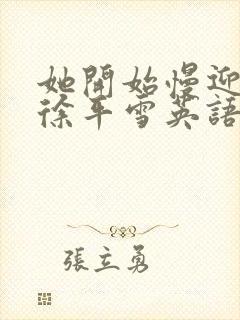 她開始慢迎
徐平雪英語
張立勇